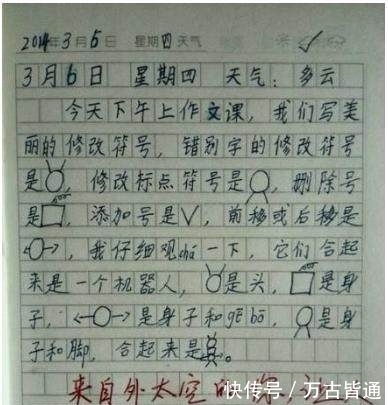 2014年3月6日 星期四天气
3月6日 星期四 天气：多云
今天下午上作文课，我们写美
丽的修改符号，错别字的修改符号
是，修改标点符号是，删除号
是，添加号是√，前移或后移是
，我仔细观chá一下，它们合起
来是一个机器人，是头，是身
子，是身子和gē bō，是身
子和脚，合起来是。
来自外太空的
快传号/万古皆通